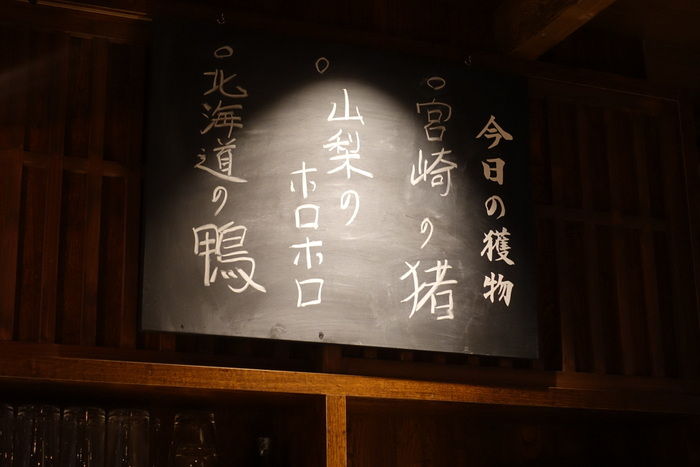 今日の獲物
○宮崎の猪
○山梨の
ホロホロ
○北海道の鴨